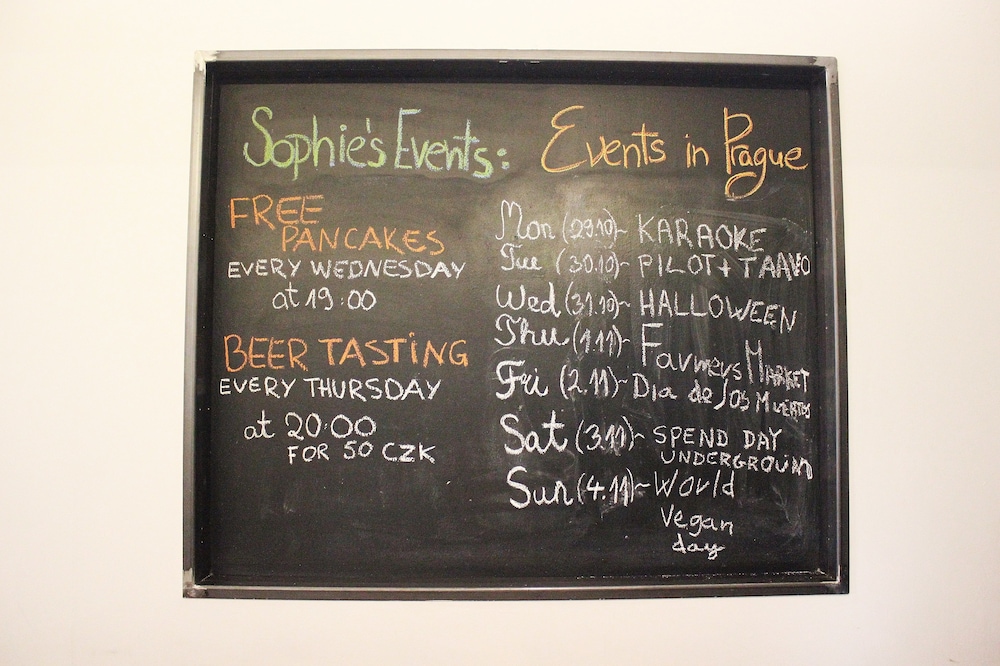 Sophie's Events:
FREE
PANCAKES
EVERY WEDNESDAY
at 19:00
BEER TASTING
EVERY THURSDAY
at 20:00
FOR 50 CZK
Events in Prague
Mon (29.10)~ KARAOKE
Tue (30.10)~ PILOT + TAAVO
Wed (31.10)~ HALLOWEEN
Thu (1.11)~ Farmers MARKET
Fri (2.11)~ Dia de los MUERTOS
Sat (3.11)~ SPEND DAY
UNDERGROUND
Sun (4.11)~ World
Vegan
day